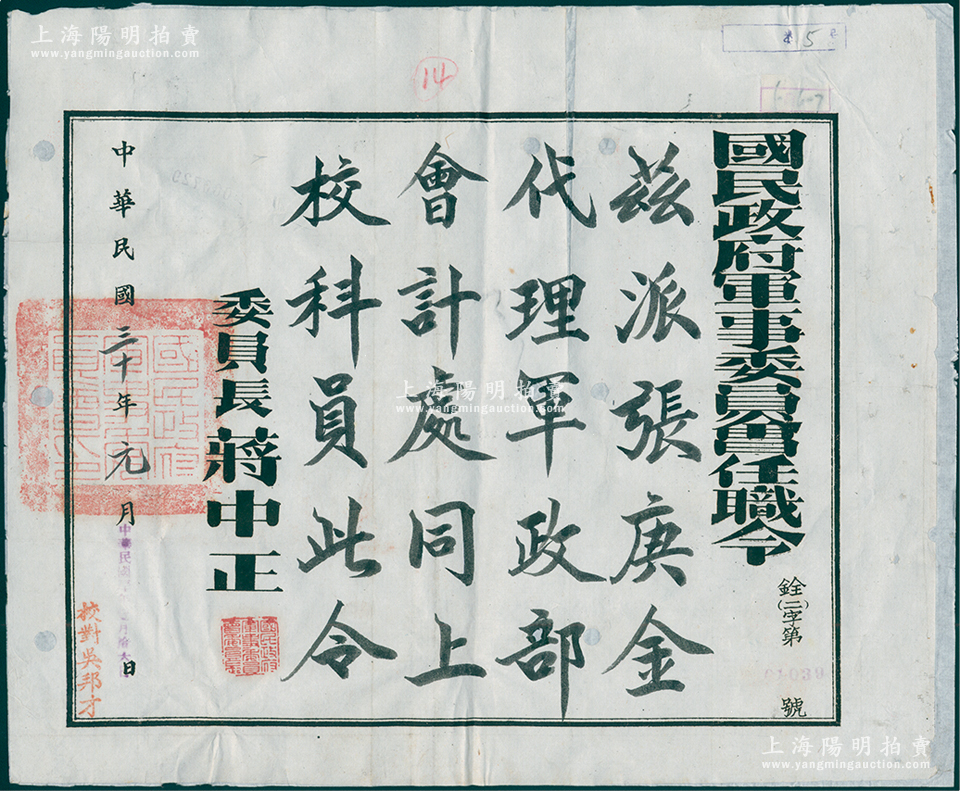 國民政府軍事委員會任職令
銓(二)字第 號
茲派張庚金
代理軍政部
會計處同上
校科員此令
委員長蔣中正
中華民國三十年元月 日
校對吳邦才
14
第5號
上海陽明拍賣
www.yangmingauction.com
上海陽明拍賣
www.yangmingauction.com
上海陽明拍賣
www.yangmingauction.com